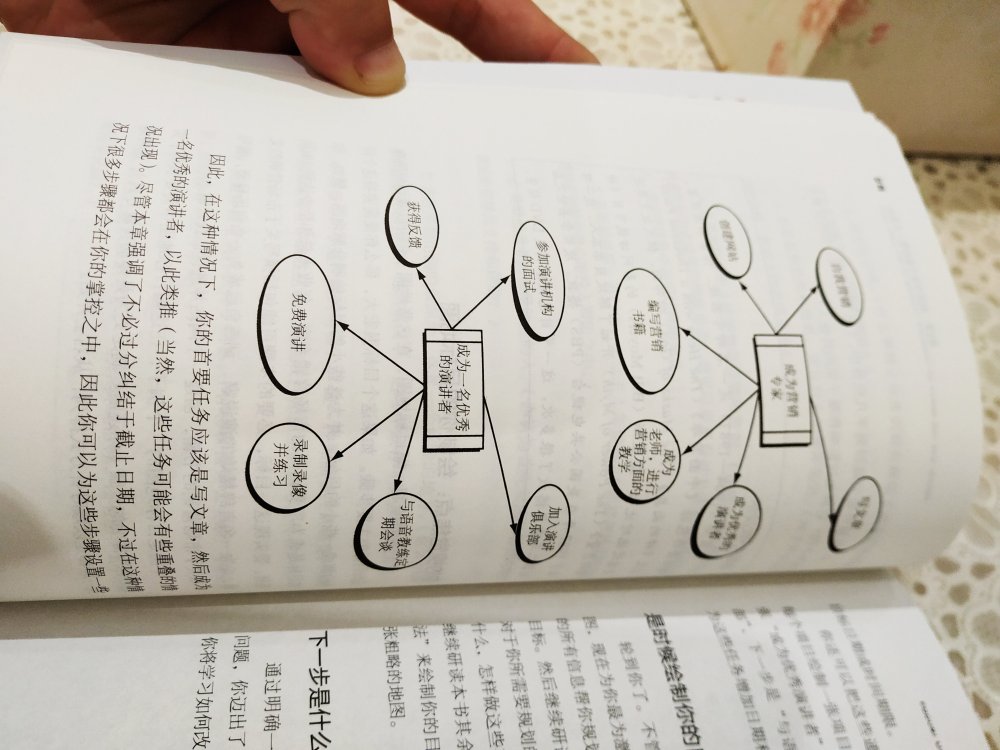 成为营销
专家
写文章
成为优秀的
演讲者
成为
老师，进行
营销方面的
教学
编写营销
书籍
创建网站
成为一名优秀
的演讲者
加入演讲
俱乐部
与语音教练定
期会谈
录制录像
并练习
免费演讲
获得反馈
参加演讲机构
的面试
因此，在这种情况下，你的首要任务应该是写文章，然后成为
一名优秀的演讲者，以此类推（当然，这些任务可能会有些重叠的情
况出现）。尽管本章强调了不必过分纠结于截止日期，不过在这种情
况下很多步骤都会在你的掌控之中，因此你可以为这些步骤设置一些
是时候绘制你的
轮到你了。不管
图，现在为你最为渴
的所有信息帮你规划
目标。然后继续研读
对于你所需要规划的
什么、怎样做这些
继续研读本书其余
法”来绘制你的目
张粗略的地图。
下一步是什么
通过明确一
问题，你迈出了
你将学习如何改